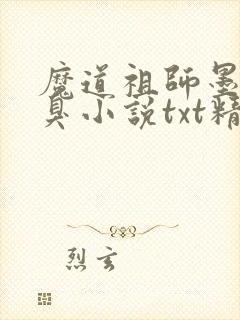 魔道祖師墨
臭小説txt精
烈玄